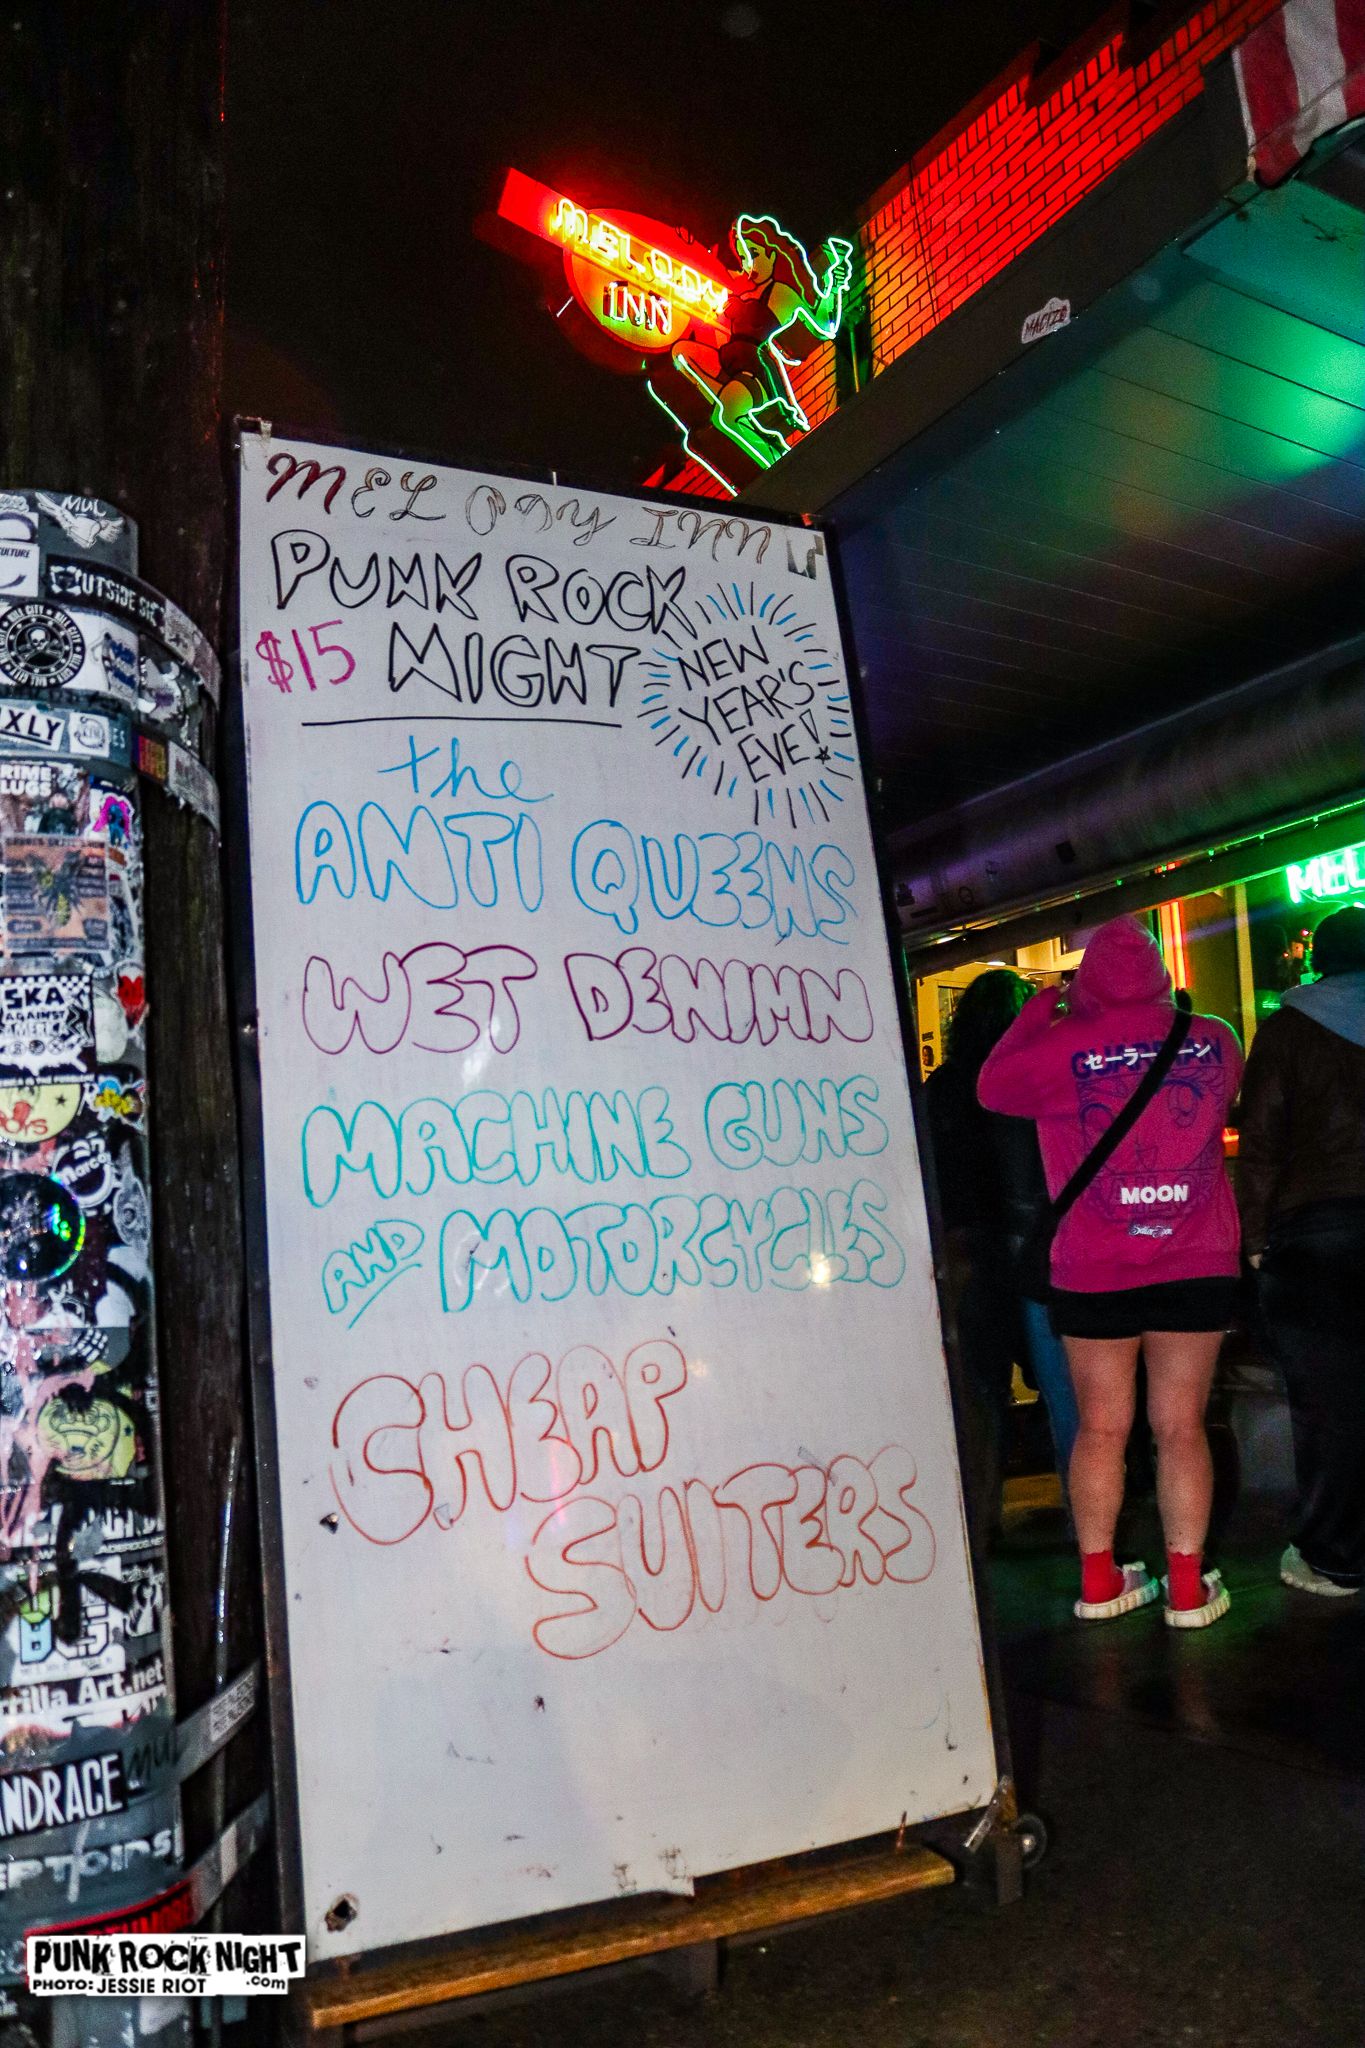 MELODY
INN
MELODY INN
PUNK ROCK
$15 NIGHT
NEW
YEAR'S
EVE!
the
ANTI QUEENS
WET DENIMN
MACHINE GUNS
AND MOTORCYCLES
CHEAP
SUITERS
MEL
セーラームーン
GUARDIAN
MOON
OUTSIDE
SKA
AGAINST
rtilla_Art.net
NDRACE
EPTOIDS
PUNK ROCK NIGHT
.com
PHOTO: JESSIE RIOT